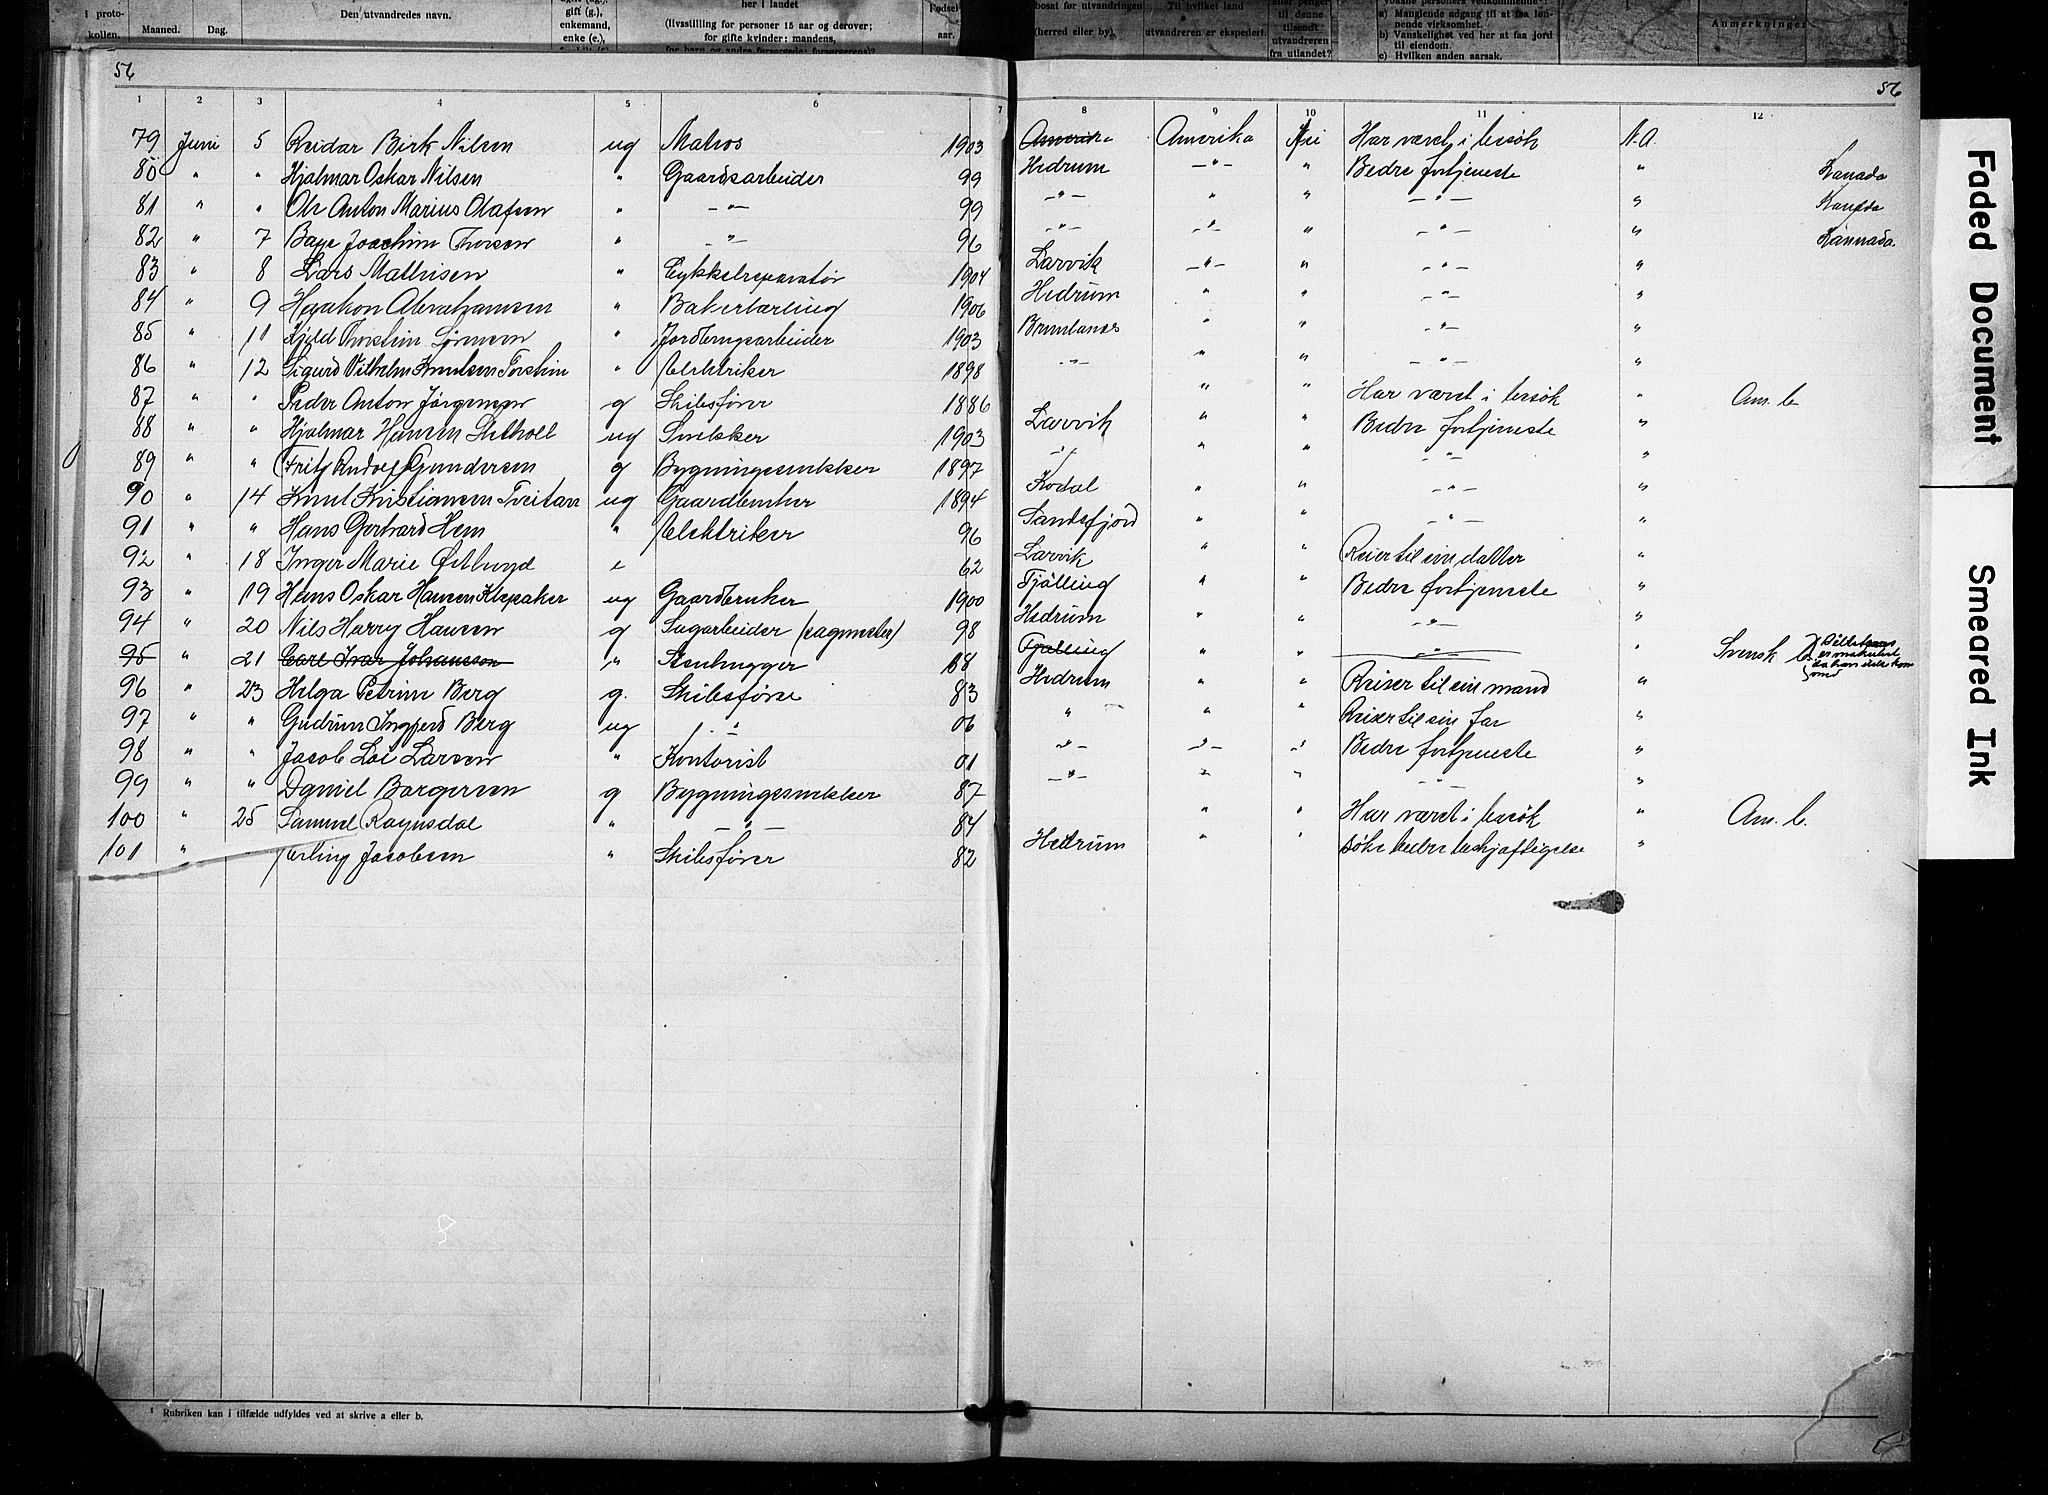 i proto-
kollen.
Maaned.
Dag.
Den utvandredes navn.
gift (g.),
enkemand,
enke (e.),
her i landet
(livsstilling for personer 15 aar og derover;
for gifte kvinder: mandens,
Fødsel
aar.
bosat før utvandringen
(herred eller by).
Til hvilket land
utvandreren er ekspedert.
eller penger
til denne
tilsendt
utvandreren
fra utlandet?
a) Manglende adgang til at faa løn-
nende virksomhet.
b) Vanskelighet ved her at faa jord
til eiendom.
c) Hvilken anden aarsak.
Anmerkninger
56 56
1 2 3 4 5 6 7 8 9 10 11 12
79 Juni 5 Reidar Birk Nilsen ug Matros 1903 Amerika Amerika Nei Har været i besøk N.A.
80 " " Hjalmar Oskar Nilsen " Gaardsarbeider 99 Hedrum -"- " Bedre fortjeneste " Kanada
81 " " Ole Anton Marius Olafsen " -"- 99 -"- " " -"- " Kanada
82 " 7 Joachim Thorsen " -"- 96 -"- -"- " -"- " Kannada.
83 " 8 Lars Mathisen " Cykkelreparatør 1904 Larvik -"- " -"- "
84 " 9 Haakon Abrahamsen " Bakerlærling 1906 Hedrum " " -"- "
85 " 11 Kjeld Thorstein Sørensen " Jordbrugsarbeider 1903 Brunlanes " " -"- "
86 " 12 Sigurd Vilhelm Knutsen Torstein " Elektriker 1898 -"- " " -"- "
87 " " Peder Anton Jørgensen g Skibsfører 1886 " " Har været i besøk " Am. b.
88 " " Hjalmar Hansen ug Snekker 1903 Larvik " " Bedre fortjeneste "
89 " " Fritz Rudolf Gundersen g Bygningssnekker 1897 -"- " " -"- "
90 " 14 Knut Kristiansen Tveitan ug Gaardbruker 1894 Kodal " " -"- "
91 " " Hans Gerhard Hem " Elektriker 96 Sandefjord " " -"- "
92 " 18 Inger Marie e 62 Larvik " " Reiser til sin datter "
93 " 19 Hans Oskar Hansen Klepaker ug Gaardbruker 1900 Tjølling " " Bedre fortjeneste "
94 " 20 Nils Harry Hansen g Sagarbeider (sagmester) 98 Hedrum " " -"- "
95 " 21 Carl Ivar Johansson " Stenhugger 68 Tjølling " " -"- " Svensk b. Billetten er makulert da han ikke kom ned
96 " 23 Helga Petrine Berg g. Skibsføre 83 Hedrum " " Reiser til sin mand "
97 " " Gudrun Ingjerd Berg ug -"- 06 " " " Reiser til sin far "
98 " " Jacob Loi Larsen " Kontorist 01 -"- -"- -"- Bedre fortjeneste "
99 " " Daniel Borgersen g Bygningssnekker 87 -"- " " -"- "
100 " 25 Samuel Ragnsdal " -"- 84 " " Har været i besøk " Am. b.
101 " Erling Jacobsen " Skibsfører 82 Hedrum " " søke bedre beskjæftigelse "
¹ Rubriken kan i tilfælde utfyldes ved at skrive a eller b.
Faded Document
Smeared Ink